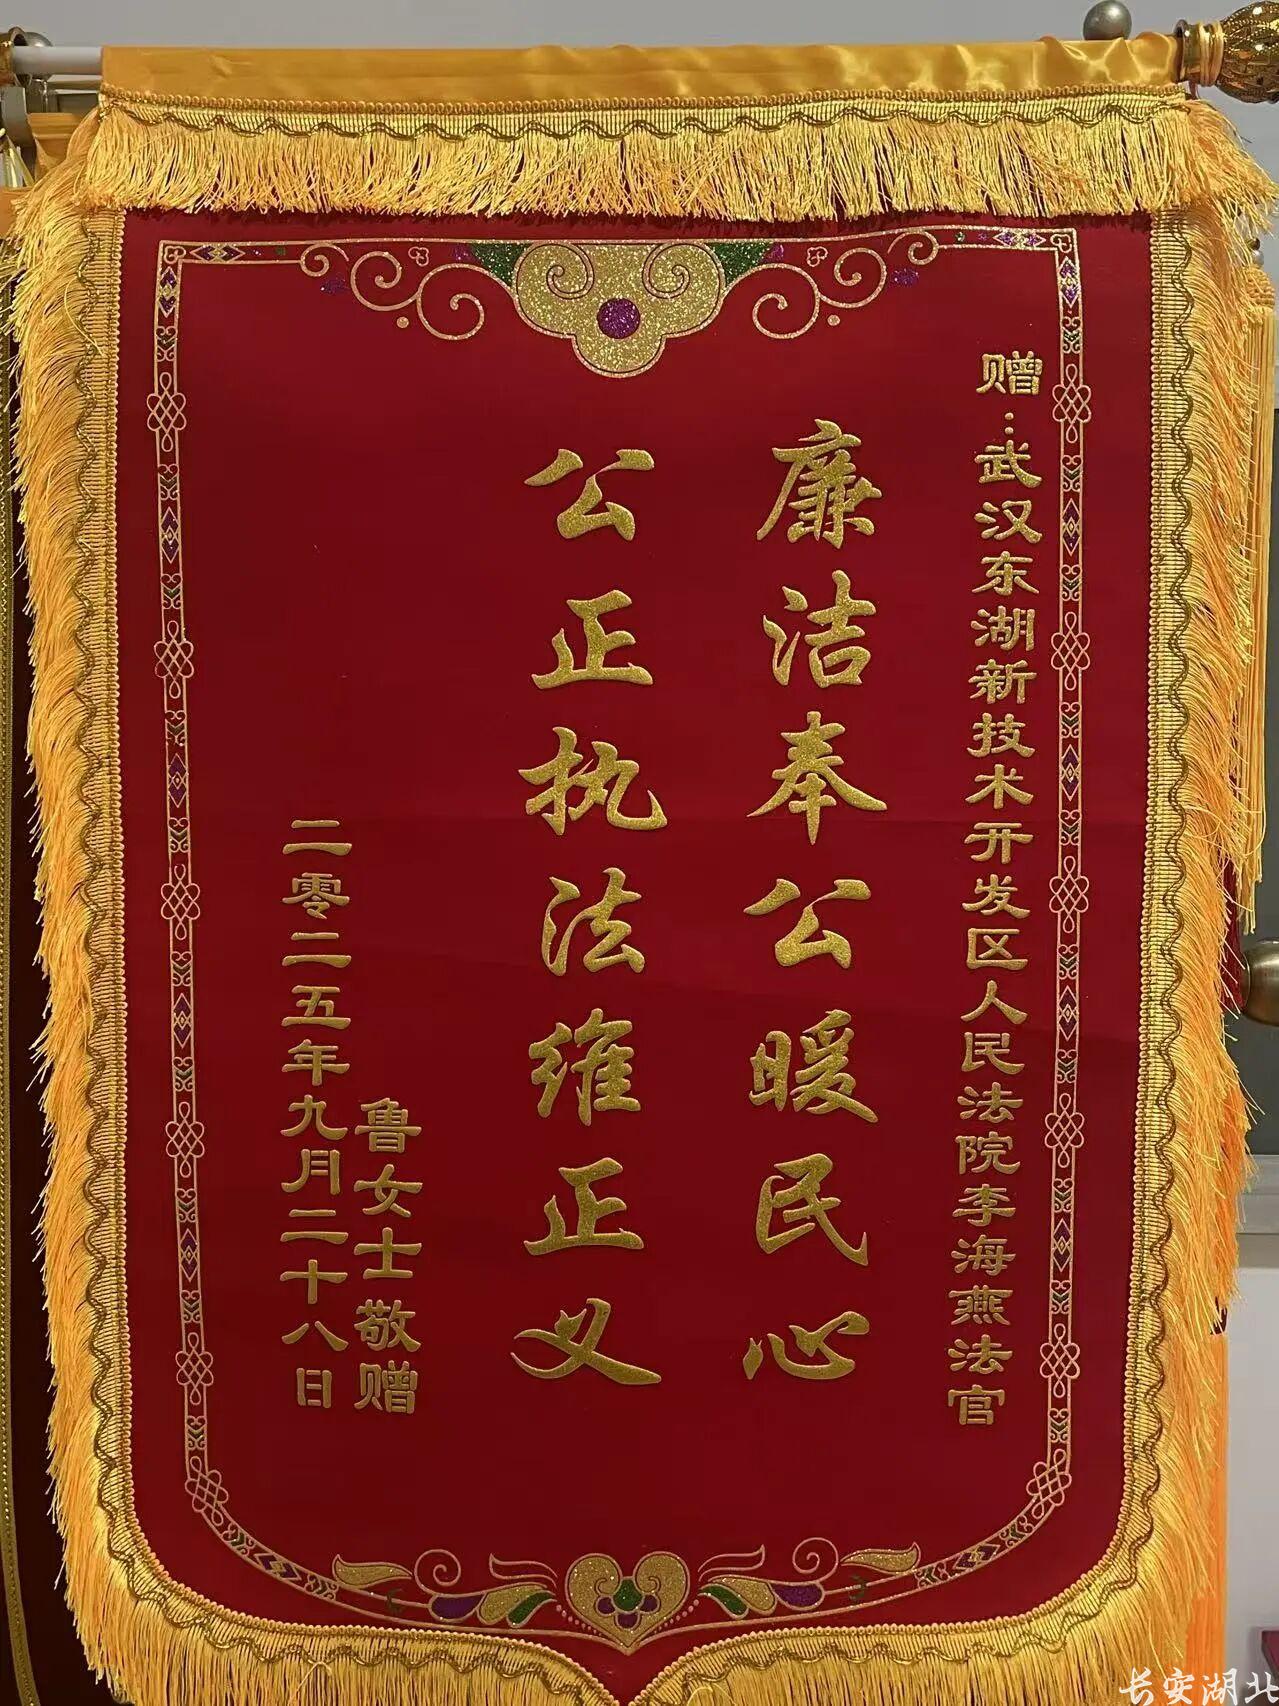 赠：武汉东湖新技术开发区人民法院李海燕法官
廉洁奉公暖民心
公正执法维正义
鲁女士敬赠
二零二五年九月二十八日
长安湖北